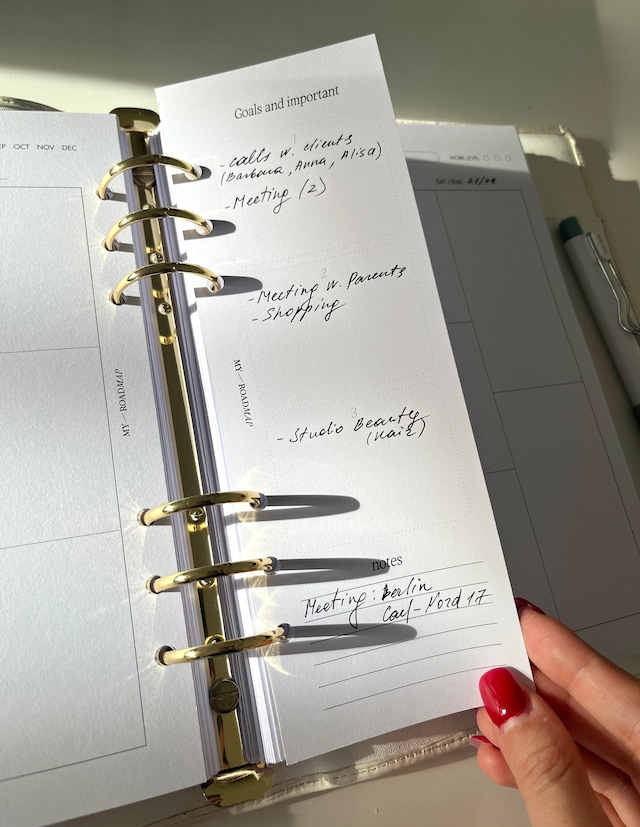 SEP OCT NOV DEC
MY—ROADMAP
Goals and important
1
- calls w. clients
(Barbara, Anna, Alisa)
- Meeting (2)
2
- Meeting w. Parents
- Shopping
MY—ROADMAP
3
- Studio Beauty
(Hair)
notes
Meeting: Berlin
Carl-Nord 17
WORK LEVEL
SAT / SUN: